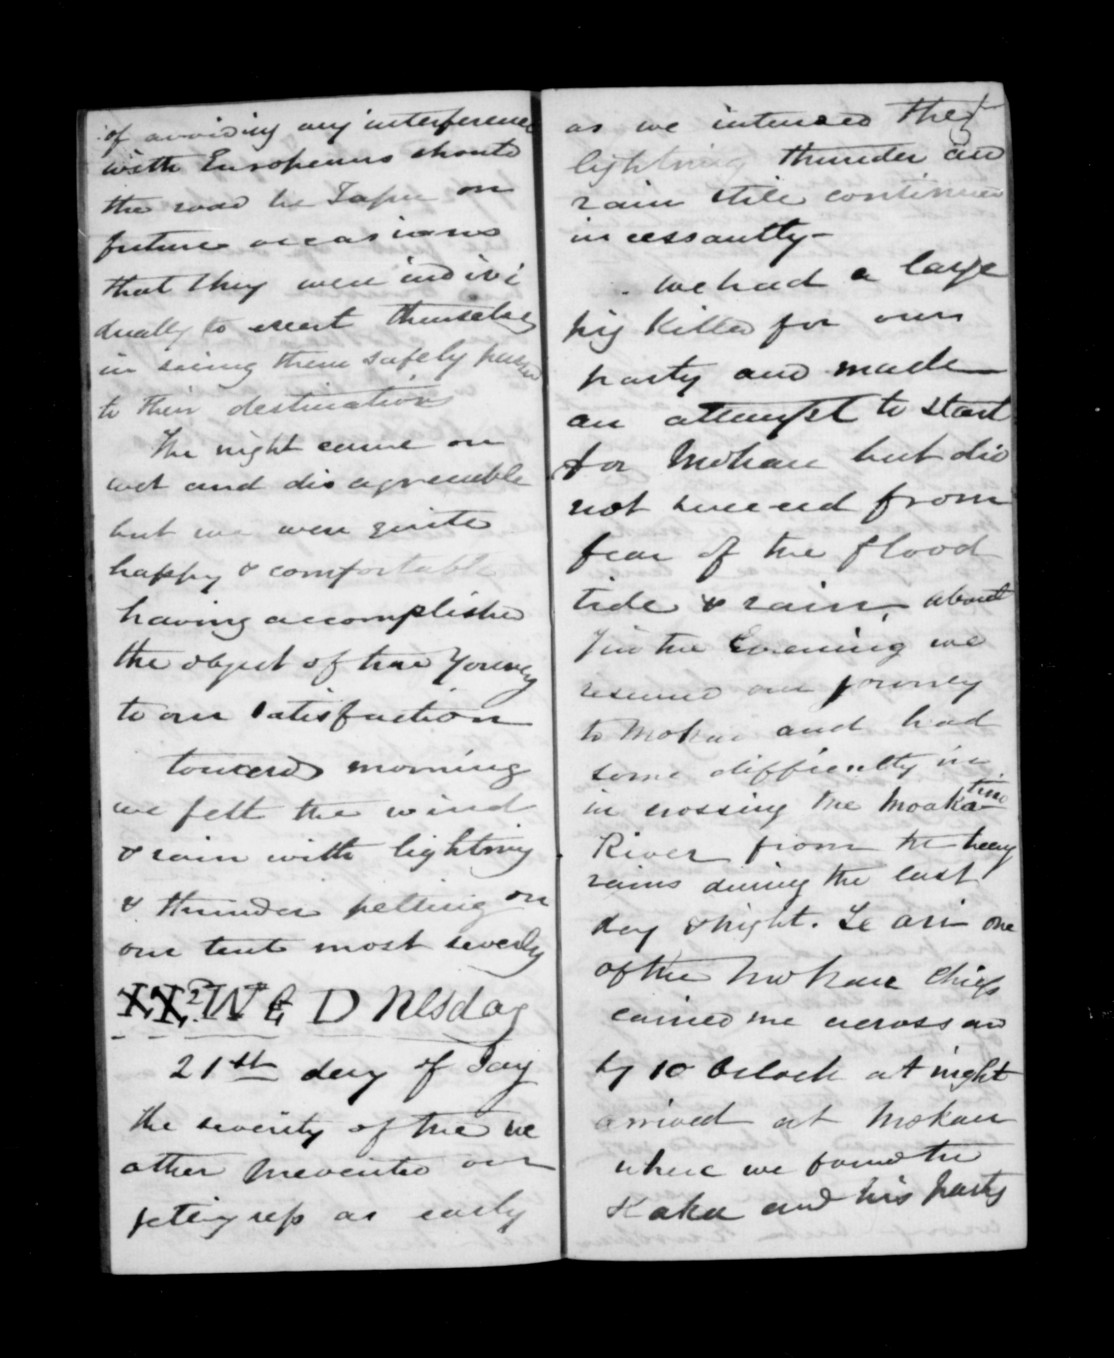 of avoiding any interference
with Europeans should
the road be Tapu on
future occasions
that they were indivi
dually to exert themselves
in seeing them safely passed
to their destination
The night came on
wet and disagreeable
but we were quite
happy & comfortable
having accomplished
the object of the Journey
to our satisfaction
towards morning
we felt the wind
& rain with lightning
& thunder pelting on
our tent most severely
Wednesday
21st day of Jay
the severity of the we
ather prevented our
geting up as early
as we intended the
lightning thunder and
rain still continued
incessantly -
We had a large
pig killed for our
party and made
an attempt to start
for Mokau but did
not succeed from
fear of the flood
tide & rain, about
7 in the Evening we
resumed our journey
to Mokau and had
some difficulty in
in crossing the Moakatino
River from the heavy
rains during the last
day & night. Te Ari one
of the Mokau Chiefs
carried me across and
by 10 Oclock at night
arrived at Mokau
where we found the
Kaka and his party